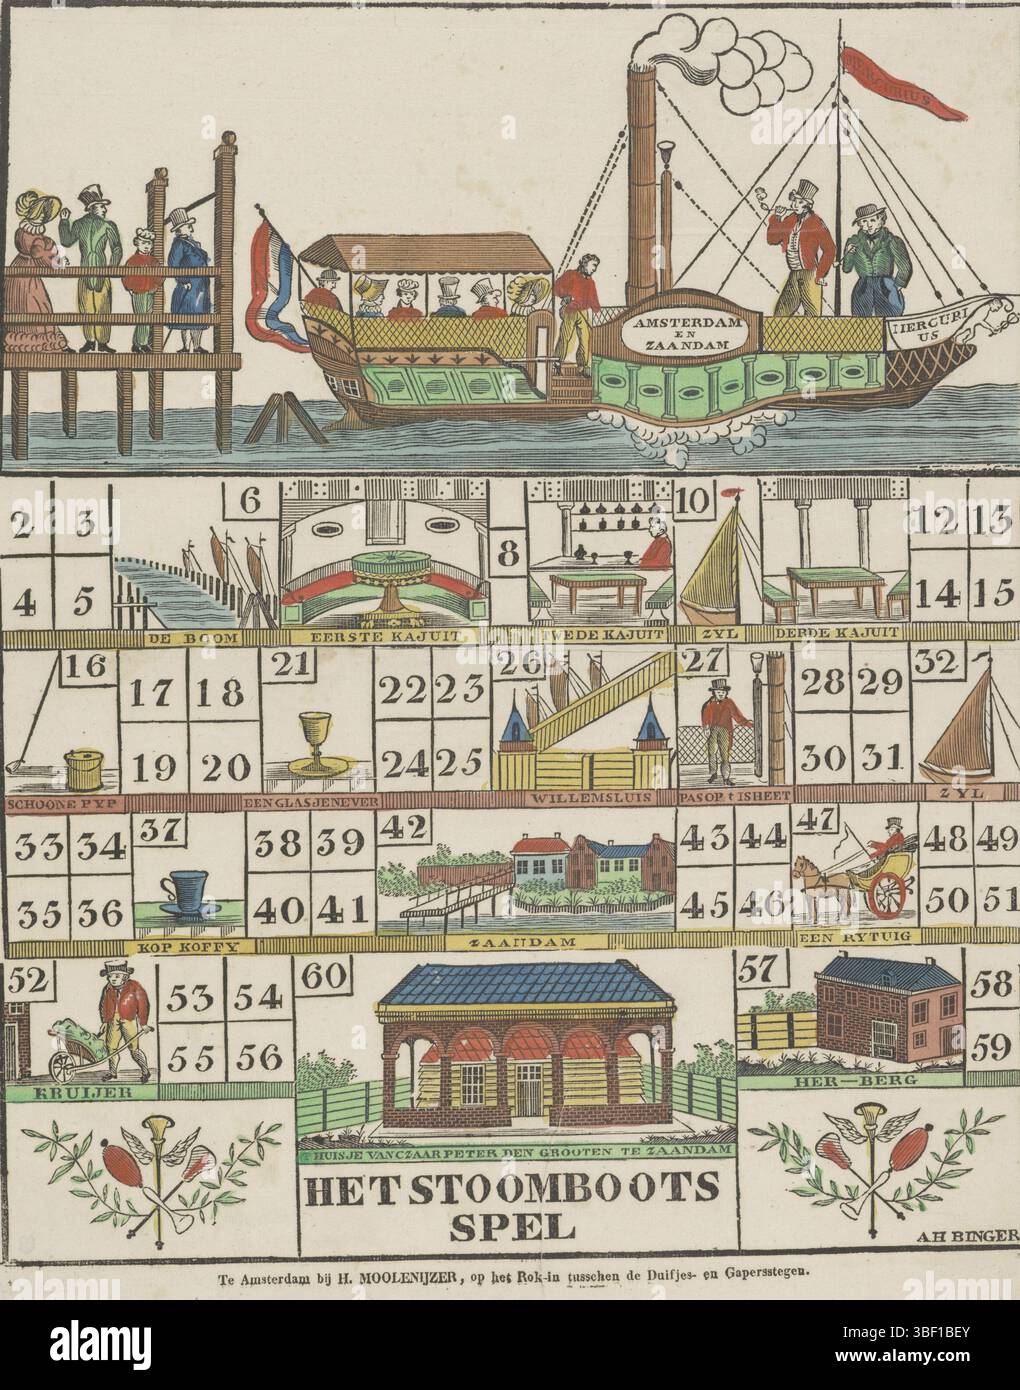 MERCURIUS
AMSTERDAM
EN
ZAANDAM
MERCURI
US
2 3 6 8 10 12 13
4 5 14 15
DE BOOM EERSTE KAJUIT TWEDE KAJUIT ZYL DERDE KAJUIT
16 17 18 21 22 23 26 27 28 29 32
19 20 24 25 30 31
SCHOONE PYP EEN GLAS JENEVER WILLEMSLUIS PAS OP t IS HEET ZYL
33 34 37 38 39 42 43 44 47 48 49
35 36 40 41 45 46 50 51
KOP KOFFY ZAANDAM EEN RYTUIG
52 53 54 60 57 58
55 56 59
KRUIJER HER-BERG
T HUISJE VAN CZAAR PETER DEN GROOTEN TE ZAANDAM
HET STOOMBOOTS
SPEL
A.H BINGER
Te Amsterdam bij H. MOOLENIJZER, op het Rok-in tusschen de Duifjes- en Gapersstegen.
alamy
Image ID: 3BF1BEY
www.alamy.com